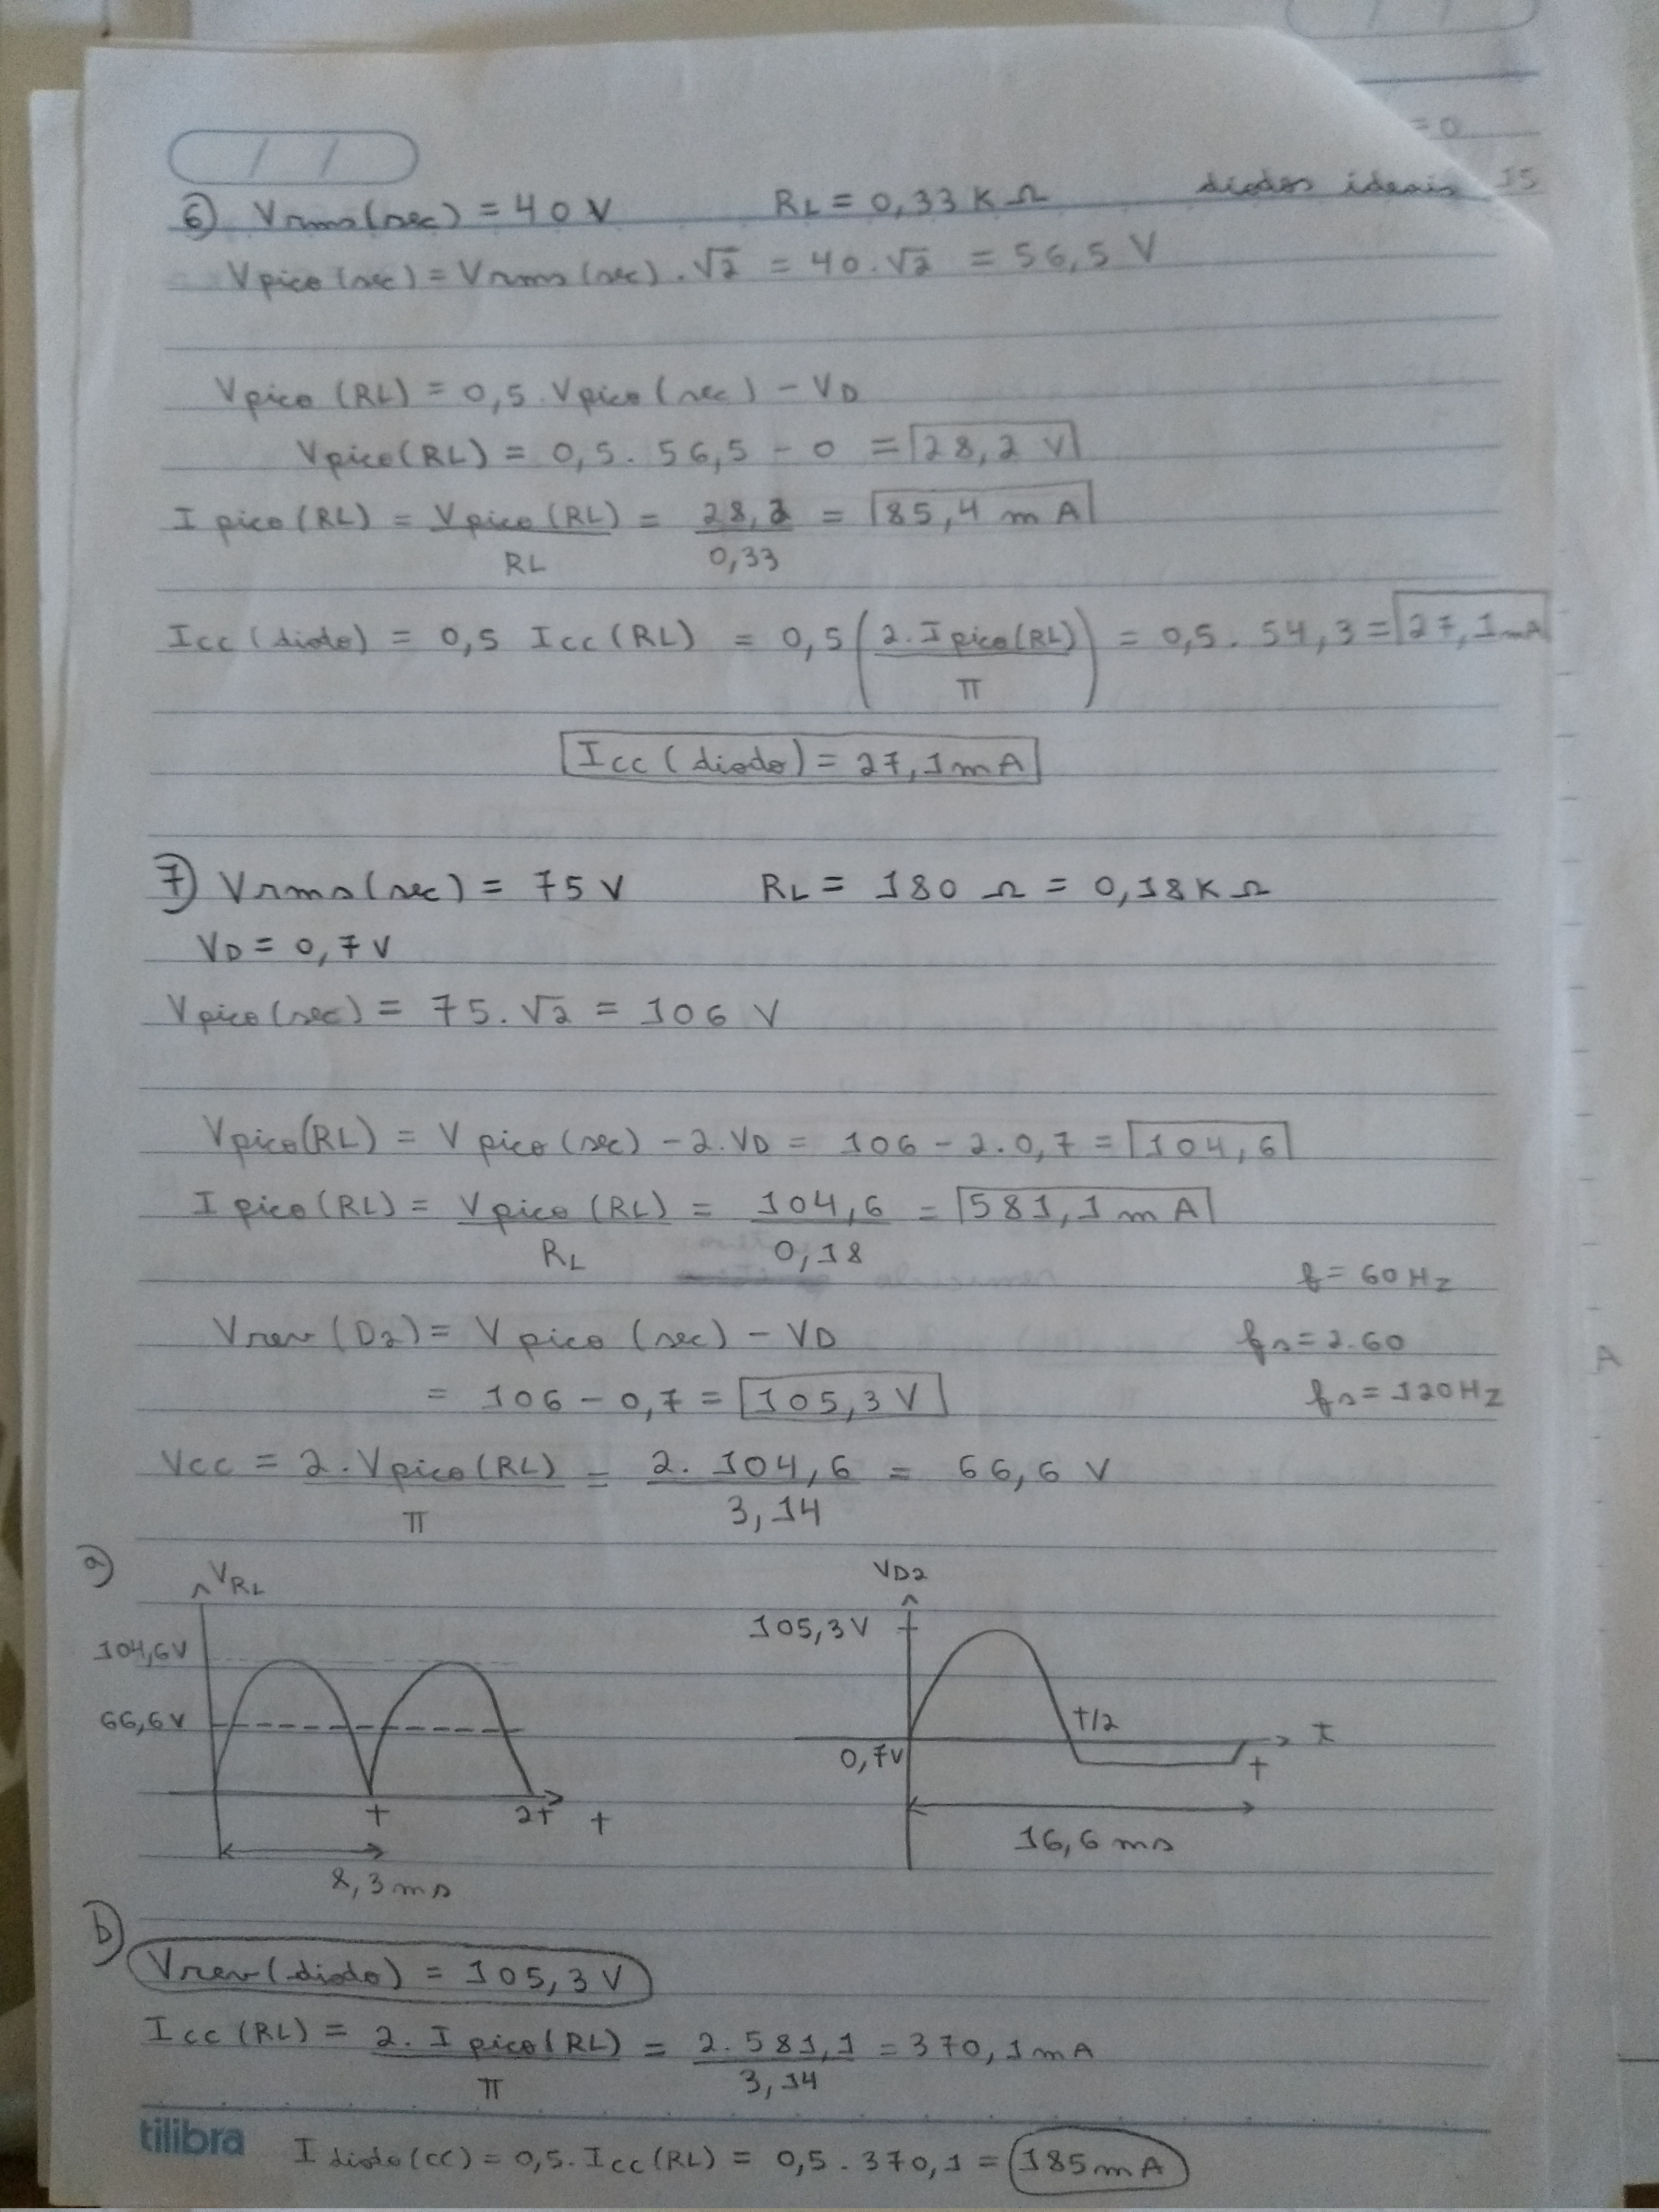 / /
= 0
15
6) Vrms(sec) = 40 V RL = 0,33 K Ω diodos ideais
Vpico(sec) = Vrms(sec) . √2 = 40 . √2 = 56,5 V
Vpico (RL) = 0,5 . Vpico (sec) - VD
Vpico(RL) = 0,5 . 56,5 - 0 = 28,2 V
I pico(RL) = Vpico(RL) / RL = 28,2 / 0,33 = 85,4 mA
Icc (diodo) = 0,5 Icc (RL) = 0,5 (2.Ipico(RL) / π) = 0,5 . 54,3 = 27,1mA
Icc (diodo) = 27,1mA
7) Vrms(sec) = 75 V RL = 180 Ω = 0,18K Ω
VD = 0,7 V
Vpico(sec) = 75 . √2 = 106 V
Vpico(RL) = V pico (sec) - 2.VD = 106 - 2.0,7 = 104,6
I pico(RL) = Vpico (RL) / RL = 104,6 / 0,18 = 581,1 mA
f = 60 Hz
Vrev (D2) = V pico (sec) - VD fs = 2.60
= 106 - 0,7 = 105,3 V fs = 120 Hz
Vcc = 2 . Vpico(RL) / π = 2. 104,6 / 3,14 = 66,6 V
a) VRL VD2
104,6V 105,3V
66,6V T/2 t
0,7V T
T 2T t
8,3ms 16,6 ms
b)
Vrev(diodo) = 105,3 V
Icc (RL) = 2. I pico(RL) / π = 2. 581,1 / 3,14 = 370,1mA
tilibra I diodo(cc) = 0,5. Icc (RL) = 0,5 . 370,1 = 185mA
A